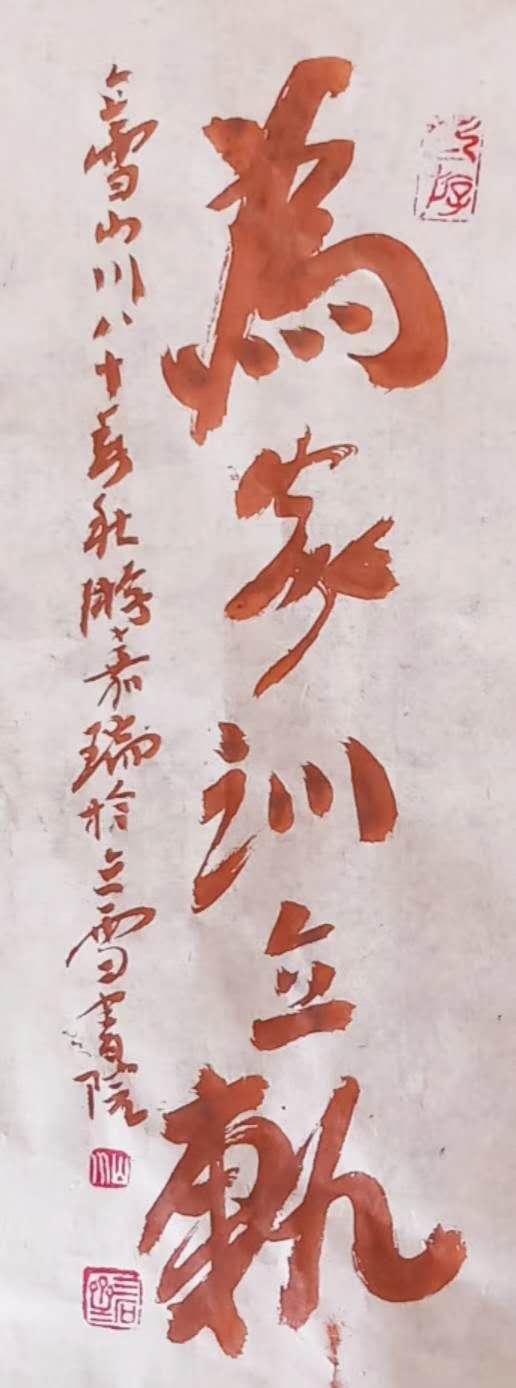 為家訓立軌
立雪山川八十春秋勝嘉瑞於立雪書院